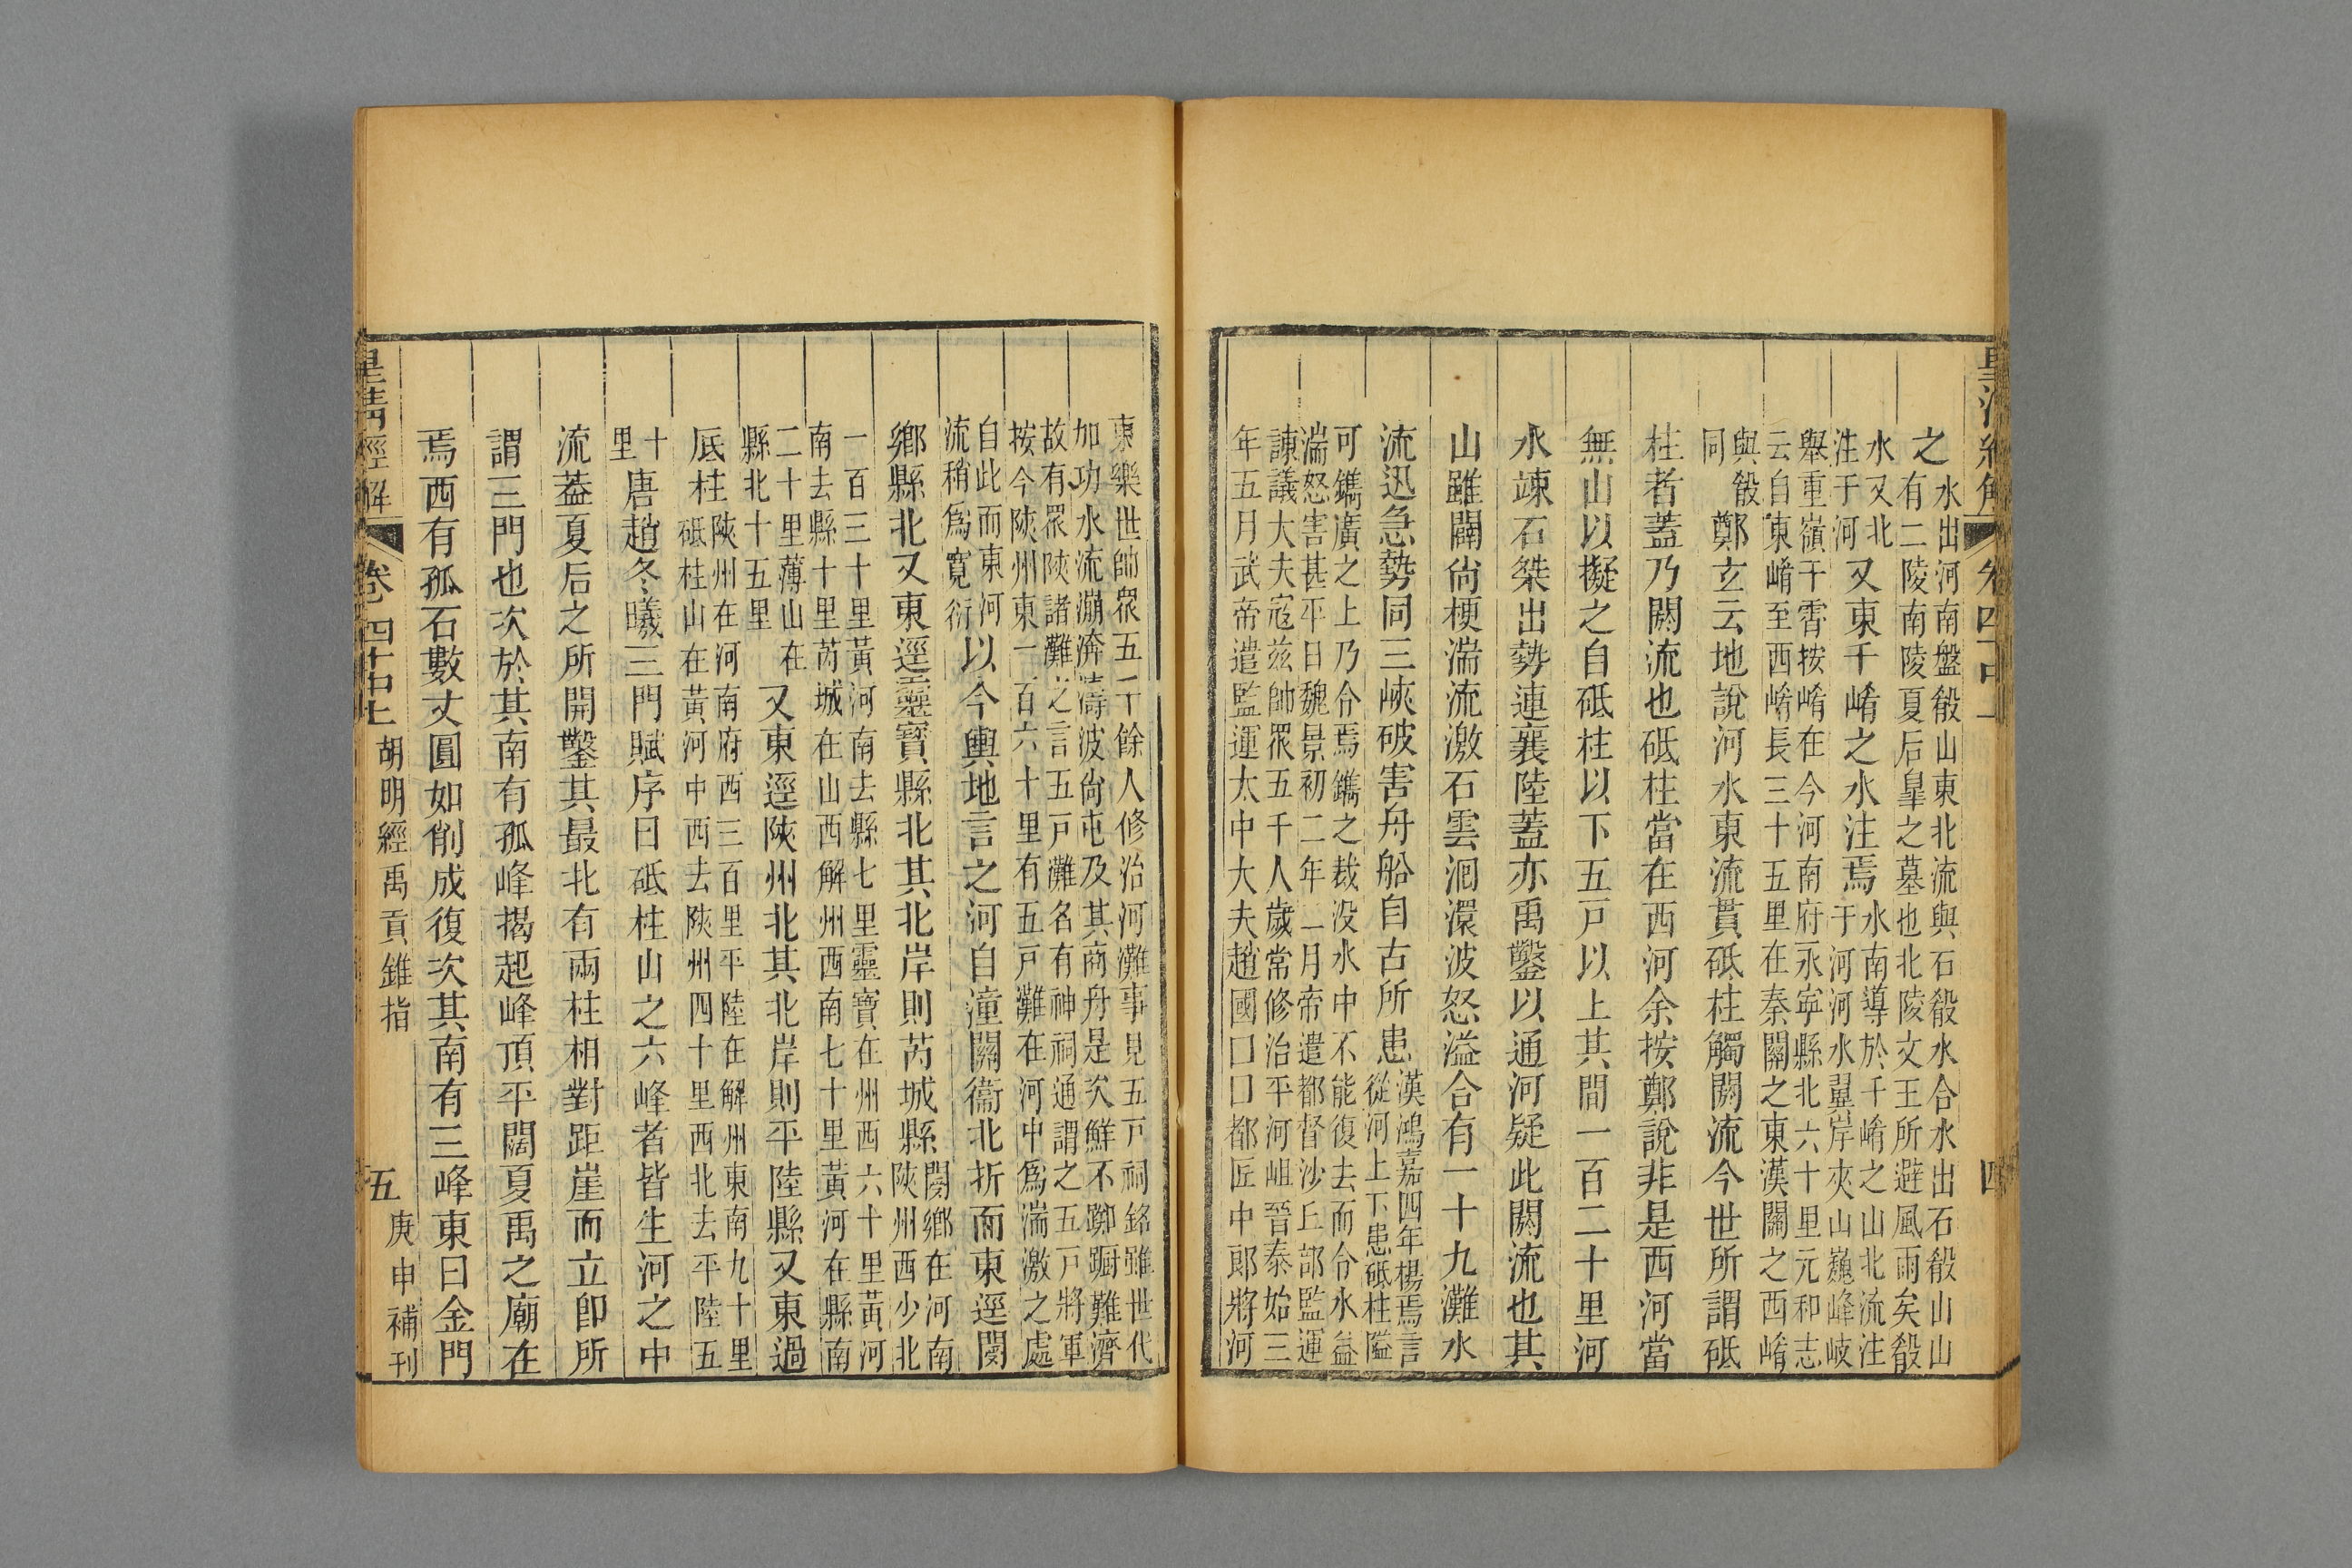 皇清經解 卷四十七 四
之
水出河南盤殽山東北流與石殽水合水出石殽山山
有二陵南陵夏后皐之墓也北陵文王所避風雨矣殽
水又北
注于河
又東千崤之水注焉
水南導於千崤之山北流注
于河河水翼岸夾山巍峰岐
舉重嶺干霄按崤在今河南府永寧縣北六十里元和志
云自東崤至西崤長三十五里在秦關之東漢關之西崤
與殽
同
鄭玄云地說河水東流貫砥柱觸閼流今世所謂砥
柱者蓋乃閼流也砥柱當在西河余按鄭說非是西河當
無山以擬之自砥柱以下五戸以上其間一百二十里河
水竦石桀出勢連襄陸蓋亦禹鑿以通河疑此閼流也其
山雖闢尙梗湍流激石雲洄澴波怒溢合有一十九灘水
流迅急勢同三峽破害舟船自古所患
漢鴻嘉四年楊焉言
從河上下患砥柱隘
可鐫廣之上乃令焉鐫之裁没水中不能復去而令水益
湍怒害甚平日魏景初二年二月帝遣都督沙丘部監運
諫議大夫寇兹帥眾五千人歲常修治平河岨晉泰始三
年五月武帝遣監運太中大夫趙國囗囗都匠中郞將河
東樂世帥眾五千餘人修治河灘事見五戸祠銘雖世代
加功水流濤波尙屯及其商舟是次鮮不踟躕難濟
故有眾陜諸灘之言五戸灘名有神祠通謂之五戸將軍
按今陜州東一百六十里有五戸灘在河中爲湍激之處
自此而東河
流稍爲寬衍
以今輿地言之河自潼關衞北折而東逕閿
鄉縣北又東逕靈寶縣北其北岸則芮城縣
閿鄉在河南
陜州西少北
一百三十里黃河南去縣七里靈寶在州西六十里黃河
南去縣十里芮城在山西解州西南七十里黃河在縣南
二十里薄山在
縣北十五里
又東逕陜州北其北岸則平陸縣又東過
厎柱
陜州在河南府西三百里平陸在解州東南九十里
砥柱山在黃河中西去陜州四十里西北去平陸五
十
里
唐趙冬曦三門賦序曰砥柱山之六峰者皆生河之中
流蓋夏后之所開鑿其最北有兩柱相對距崖而立卽所
謂三門也次於其南有孤峰揭起峰頂平闊夏禹之廟在
焉西有孤石數丈圓如削成復次其南有三峰東曰金門
皇清經解 卷四十七 胡明經禹貢錐指 五 庚申補刊